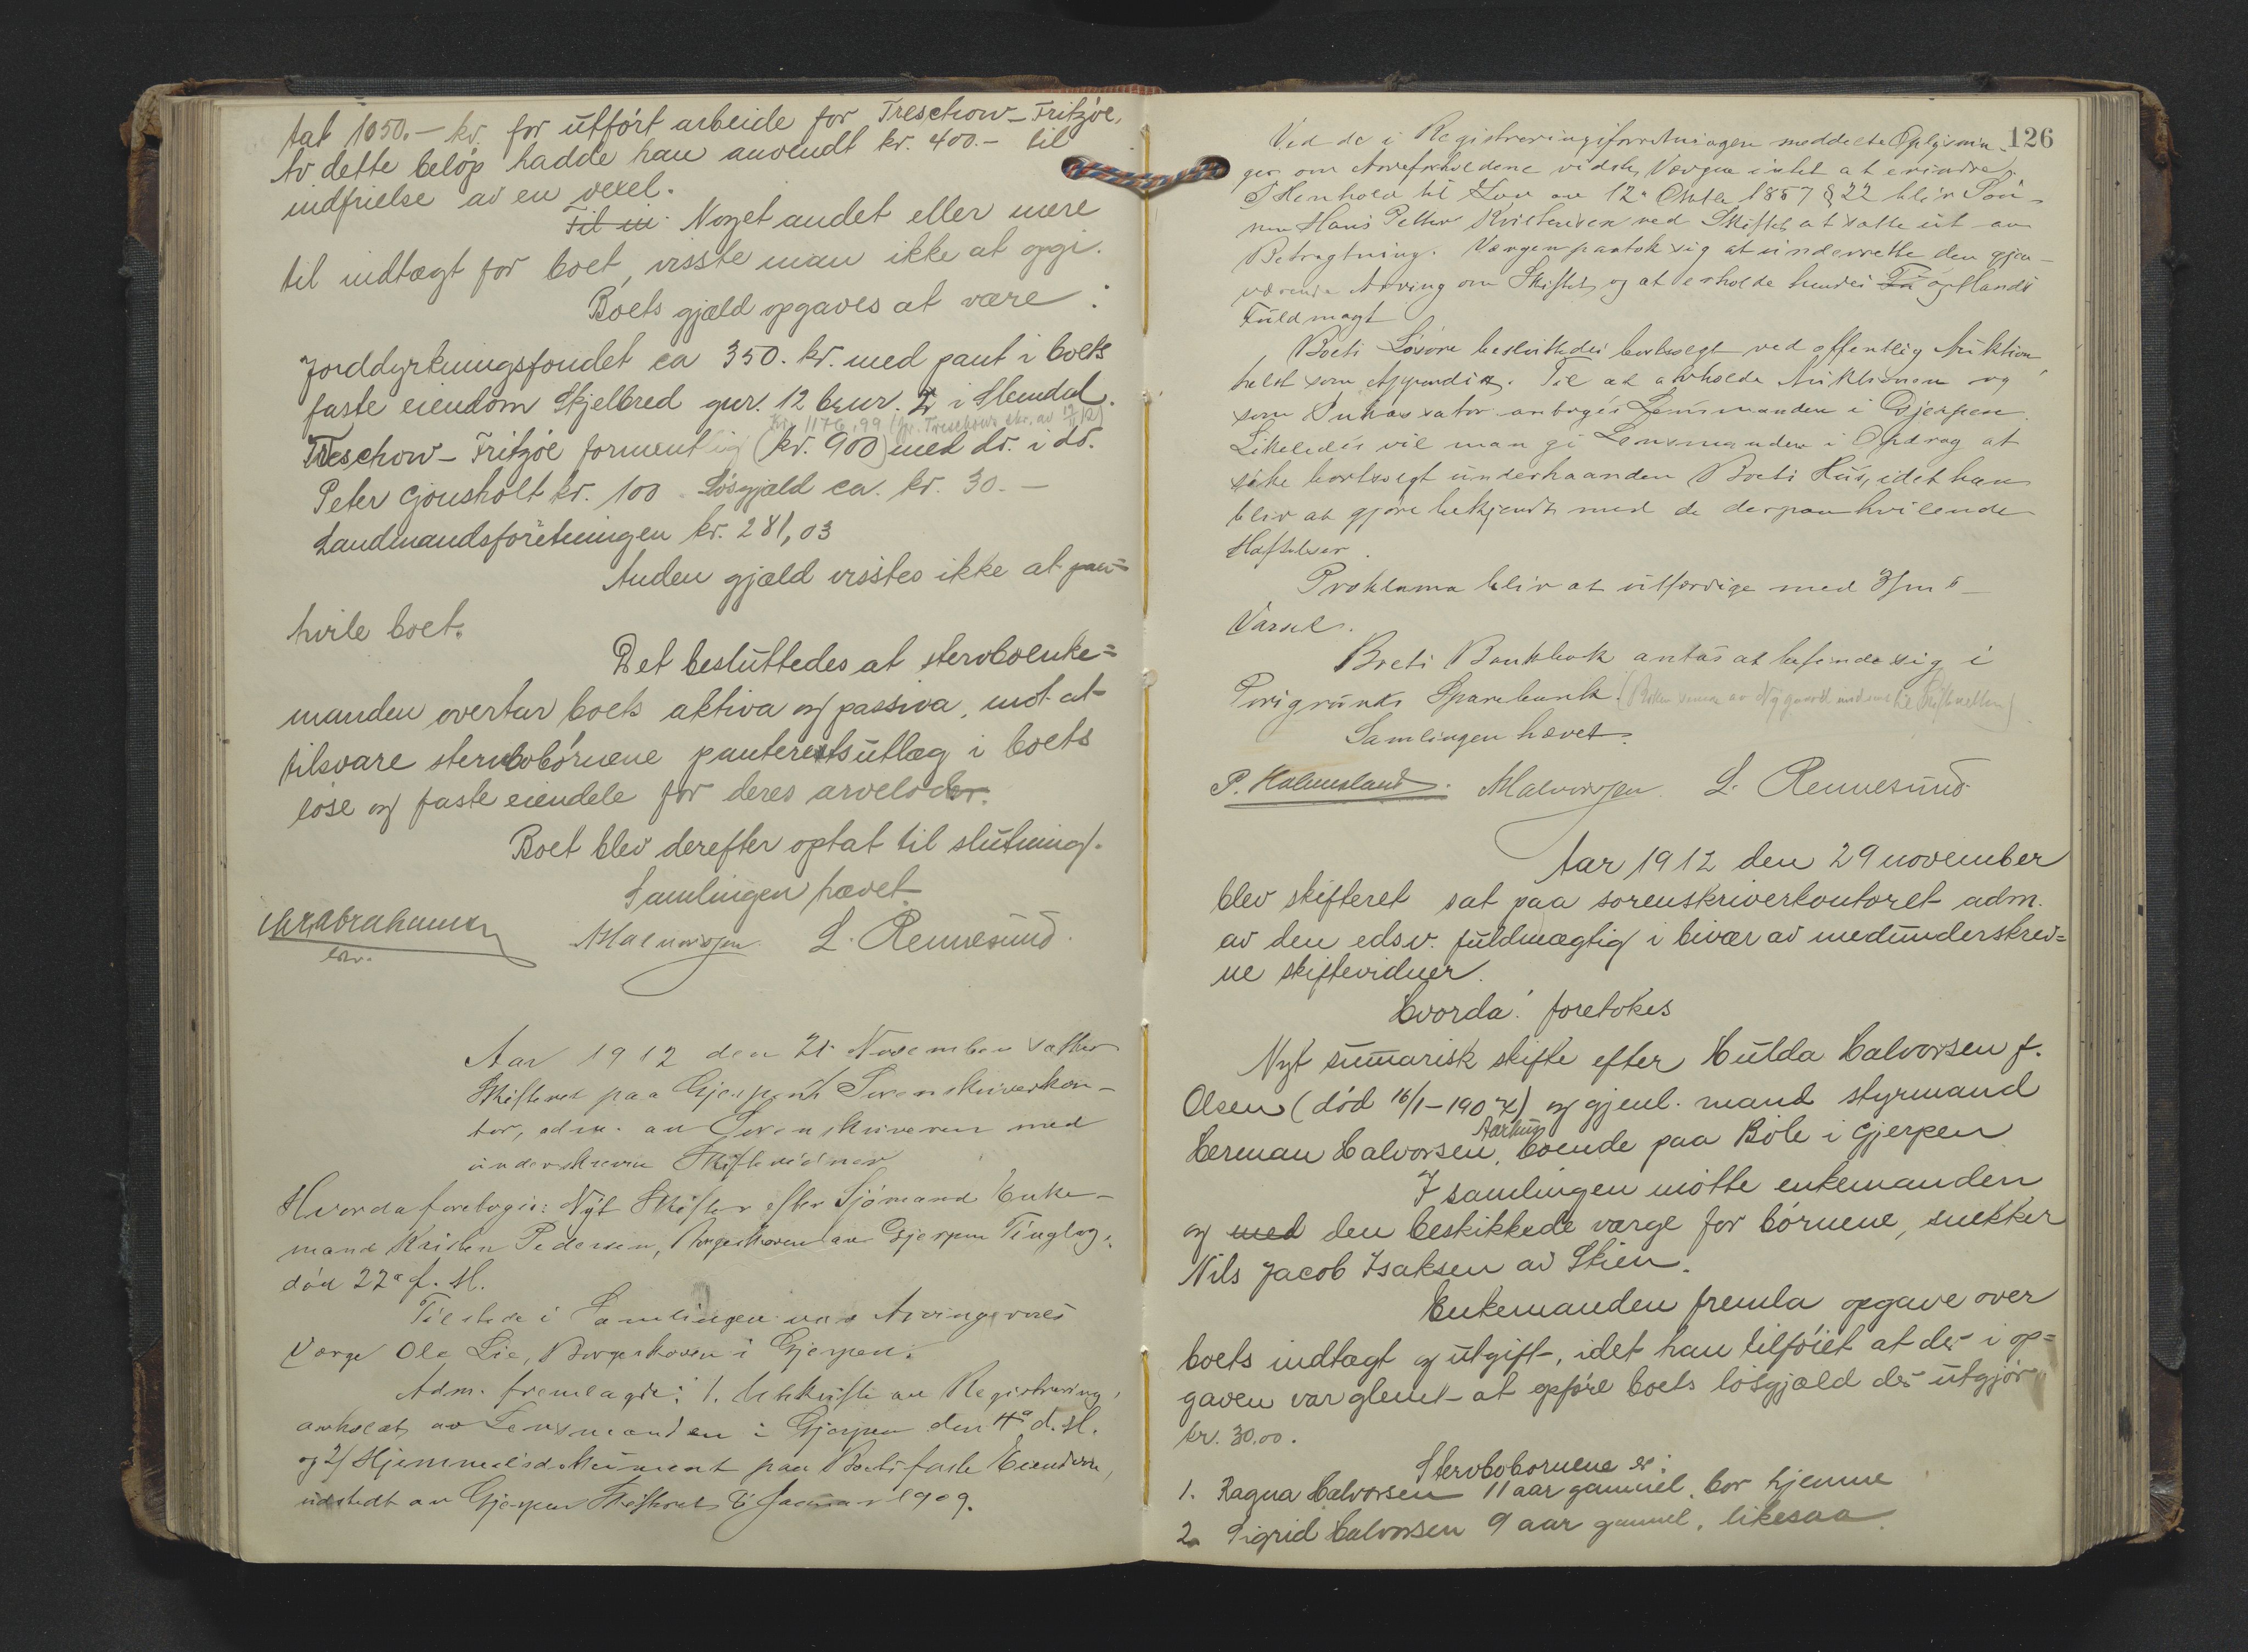 tat 1050.- kr. for utført arbeide for Treschow-Fritzöe,
Av dette beløp hadde han anvendt kr. 400.- til
indfrielse av en vexel.
Til in Noget andet eller mere
til indtægt for boet, visste man ikke at opgi.
Boets gjæld opgaves at være:
Jorddyrkningsfondet ca 350. kr. med pant i boets
faste eiendom Skjelbred gnr. 12 brnr. 2 i Slemdal.
Kr. 1176,99 (gr. Treschows skr. av
Treschow-Fritzöe formentlig (kr. 900) med do. i do.
Peter Gjonsholt kr. 100. Løsgjæld ca. kr. 30.-
Landmandsforretningen kr. 281,03
Anden gjæld visstes ikke at paa=
hvile boet.
Det besluttedes at stervboenke=
manden overtar boets aktiva og passiva, mot at
tilsvare stervbobørnene panteretsutlæg i boets
løse og faste eiendele for deres arvelodder.
Boet blev derefter optat til slutning.
Samlingen hævet.
Chr. Abrahamsen
A Halvorsen L. Rennesund.
Aar 1912 den 21 November sattes
Skifteret paa Gjerpens Sorenskriverkon-
tor, adm. av Sorenskriveren med
underskrevne Skiftevidner
Hvorda foretoges: Nyt Skifte efter Sjömand Enke-
mand Kristen Pedersen, Borgeskoven av Gjerpen Tinglag,
död 22de f. M.
Tilstede i Samlingen var Arvingernes
Verge Ole Lie, Borgeskoven i Gjerpen.
Adm. fremlagde: 1. Utskrift av Registrering,
avholdt av Lensmanden i Gjerpen den 4de d. M.
og 2/ Hjemmelsdokument paa Boets faste Eiendom,
udstedt av Gjerpen Skifteret Januar 1909.
126
Ved de i Registreringsforretningen meddelte Oplysnin-
ger om Arveforholdene vidste Vergen intet at erindre.
I Henhold til Lov av 12te Oktbr 1857 § 22 blir Søn-
nen Hans Petter Kristensen ved Skiftet at sætte ut av
Betragtning. Vergen paatok sig at underrette den gjen-
værende Arving om Skiftet og at erholde hendes
Fuldmagt
Boets Lösöre besluttedes bortsolgt ved offentlig Auktion
helst som Appendix. Til at avholde Auktionen og
som Inkassator antoges Lensmanden i Gjerpen.
Likeledes vil man gi Lensmanden i Opdrag at
søke bortsolgt underhaanden Boets Hus, idet han
blir at gjøre bekjendt med de derpaa hvilende
Heftelser.
Proklama blir at utfærdige med 3
Varsel.
Boets Bankbok antas at befinde sig i
Porsgrunds Sparebank. (Boken senere av Nygaard indsendt til Skifteretten)
Samlingen hævet.
P. Holmesland. A Halvorsen L. Rennesund
Aar 1912 den 29 november
blev skifteret sat paa sorenskriverkontoret adm.
av den edsv. fuldmægtig i bivær av medunderskrev=
ne skiftevidner.
Hvorda! foretokes
Nyt summarisk skifte efter Hulda Halvorsen f.
Olsen (död 16/1-1907) og gjenl. mand styrmand
Aarhus
Herman Halvorsen, boende paa Böle i Gjerpen
I samlingen møtte enkemanden
og med den beskikkede værge for børnene, snekker
Nils Jacob Isaksen av Skien.
Enkemanden fremla opgave over
boets indtægt og utgift, idet han tilføiet at der i op=
gaven var glemt at opføre boets løsgjæld der utgjør
kr. 30.00.
Stervbobørnene er:
1. Ragna Halvorsen 11 aar gammel, bor hjemme
2. Sigrid Halvorsen 9 aar gammel, likesaa.